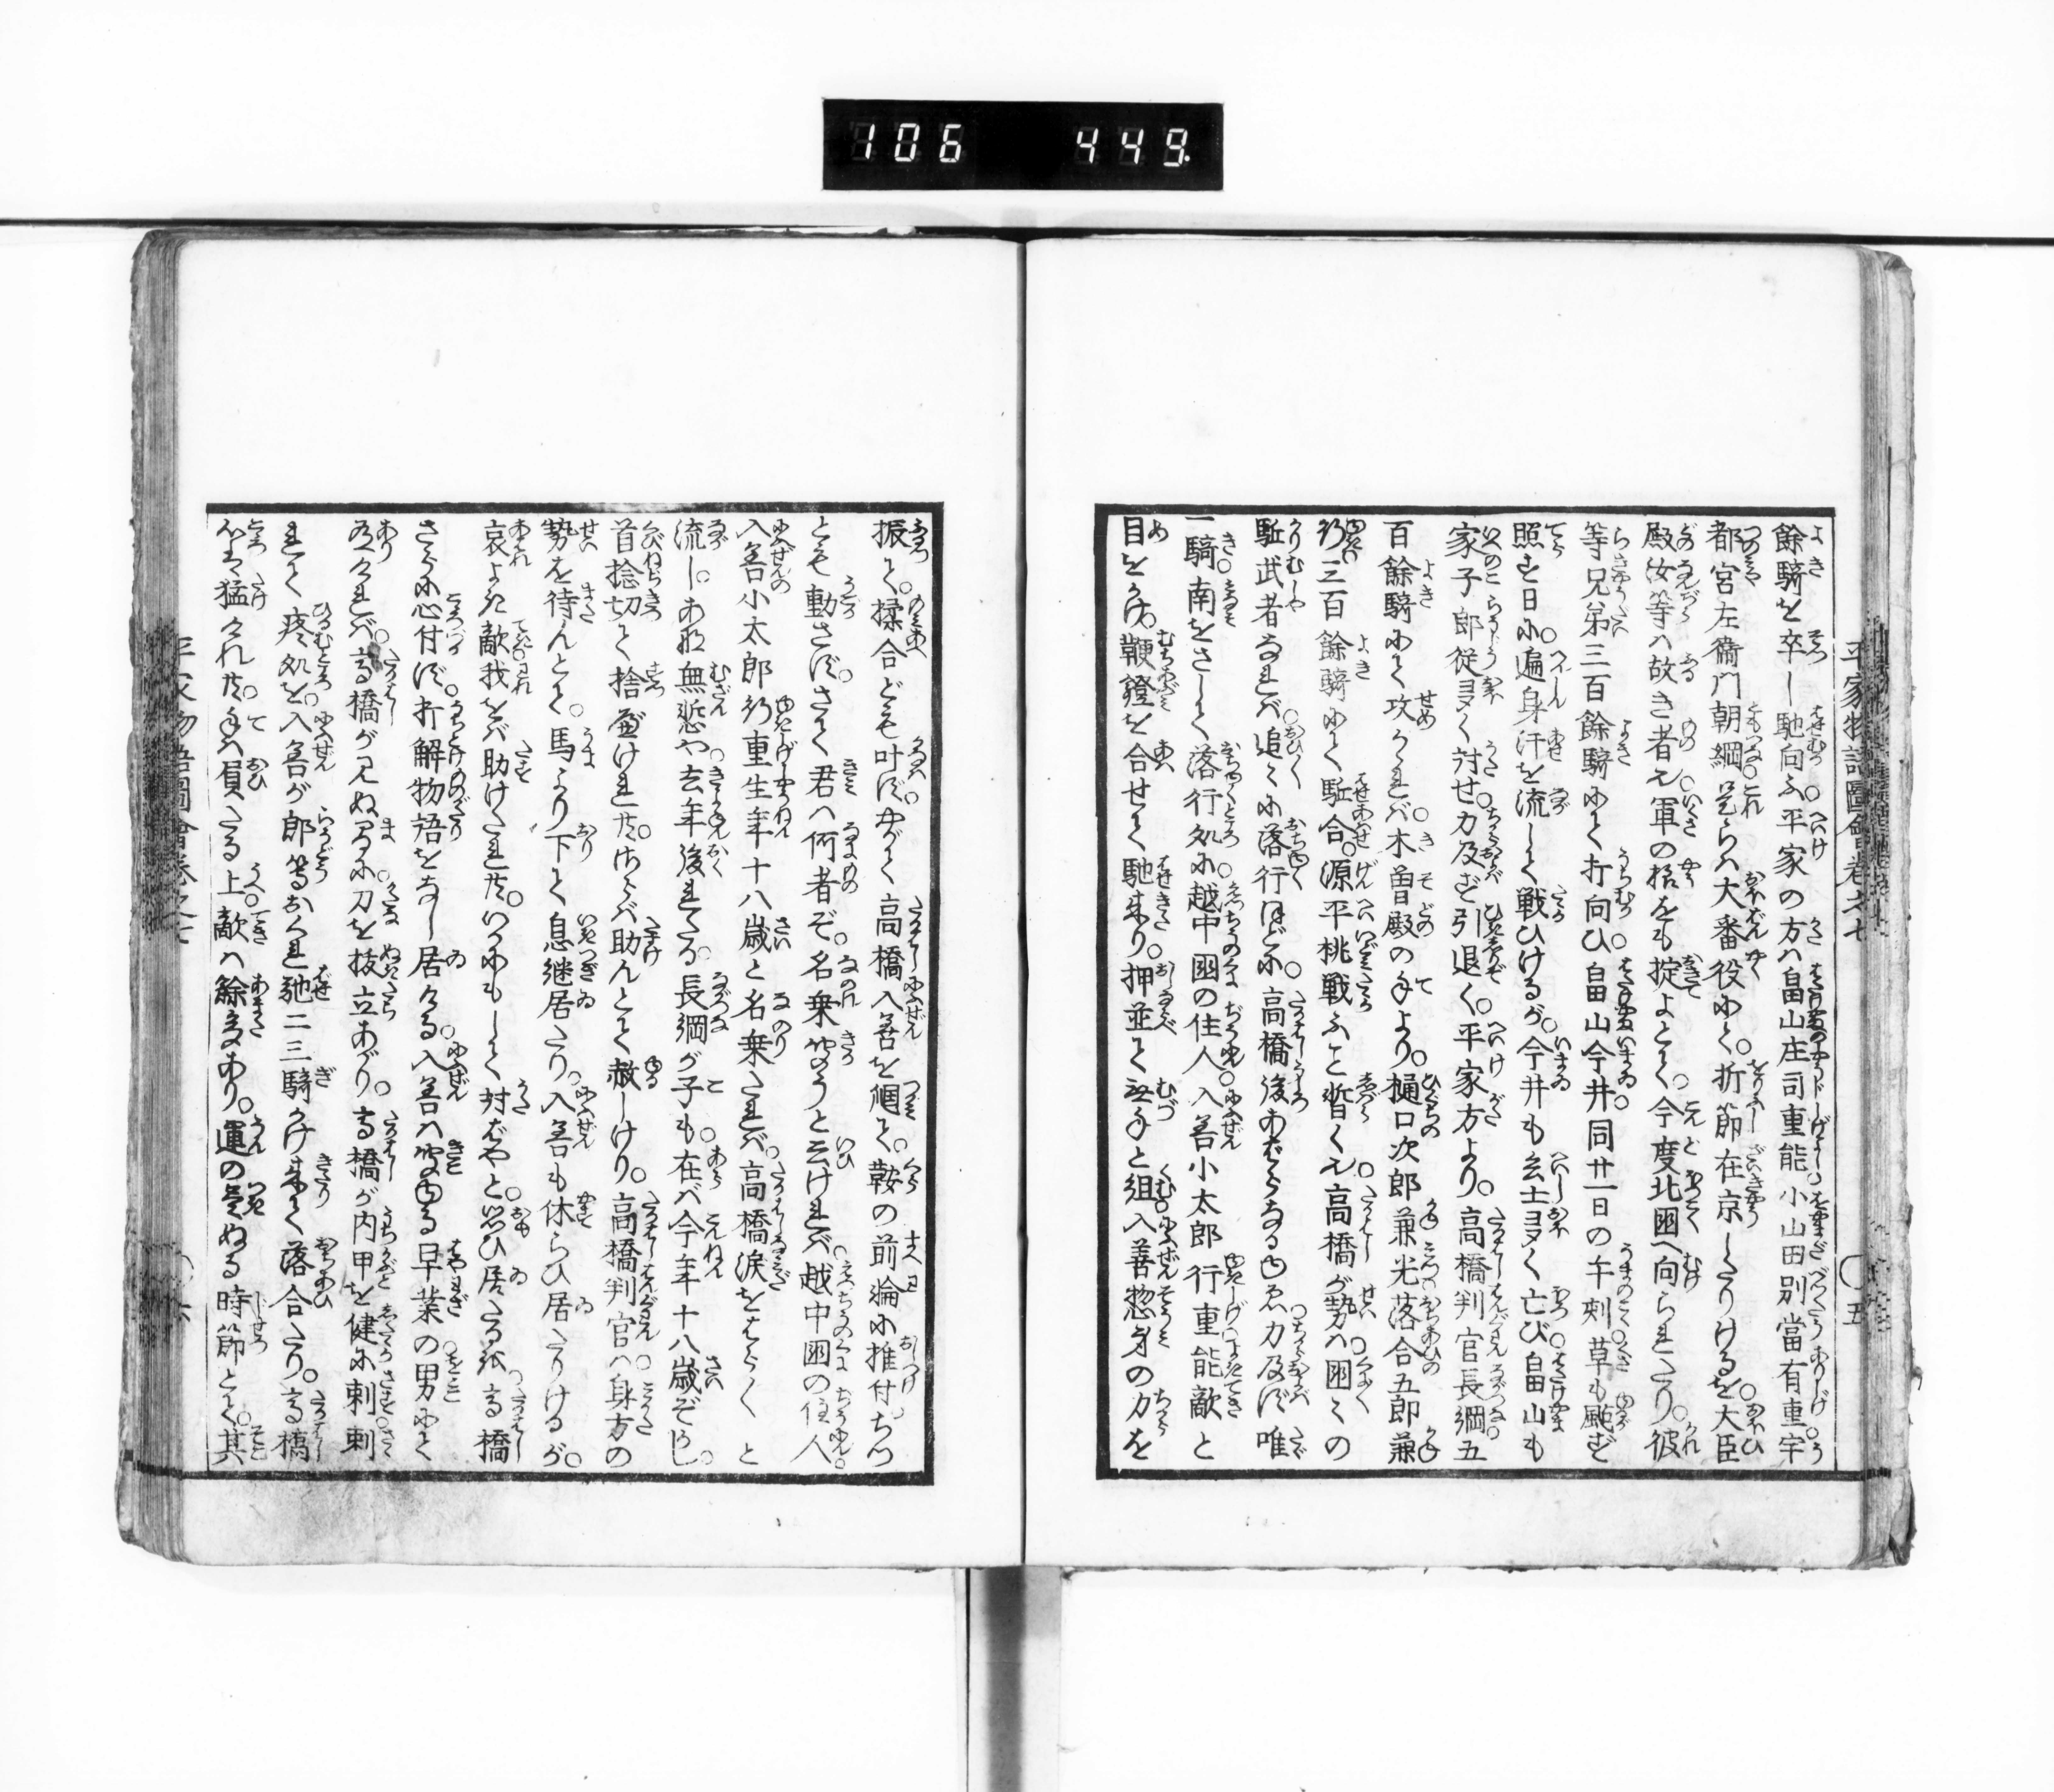 106 449
平家物語圖會卷之七 五
餘騎を卒し馳向ふ。平家の方ハ畠山庄司重能。小山田別當有重。宇
都宮左衞門朝綱。是らハ大番役にて。折節在京したりけるを。大臣
殿汝等ハ故き者也。軍の様をも掟よとて。今度北国へ向られたり。彼
等兄弟三百餘騎にて打向ひ。畠山今井。同廿一日の午刻草も颭ず
照す日に。遍身汗を流して戦ひけるが。今井も兵士多く亡び。畠山も
家子郎從多く討せ。力及ず引退く。平家方より。高橋判官長綱。五
百餘騎にて攻かくれバ。木曽殿の手より。樋口次郎兼光。落合五郎兼
行。三百餘騎にて駈合。源平挑戦ふこと暫く也。高橋が勢ハ。国々の
駈武者なれバ。追々に落行ほどに。高橋後あばらなるゆゑ。力及ず。唯
一騎。南をさして落行処に。越中国の住人。入善小太郎行重。能敵と
目をかけ。鞭鐙を合せて馳来り。押並て无手と組。入善惣身の力を
振て。揉合ども叶ず。やがて高橋入善を㧽て。鞍の前淪に推付。ちつ
とも動さず。さて君ハ何者ぞ。名乗や聞うと云けれバ。越中国の住人。
入善小太郎行重生年十八歳と名乗たれバ。高橋涙をはらゝと
流し。あな無慙や。去年後れたる。長綱が子も。在バ今年十八歳ぞかし。
首捻切て捨べけれ共。さらバ助んとて赦しけり。高橋判官ハ。身方の
勢を待んとて。馬より下て息継居たり。入善も休らひ居たりけるが。
哀よき敵。我をバ助けたれ共。いかにもして討ばやと。思ひ居たるを。高橋
さらに心付ず。打解物語をなし居ける。入善ハ聞ゆる早業の男にて
有けれバ。高橋が見ぬ間に。刀を抜立あがり。高橋が内甲を健に刺。刺
れて疼処を。入善が郎等おくれ馳二三騎かけ来て落合たり。高橋
心ハ猛けれ共。手ハ負たる上。敵ハ餘多あり。運の尽ぬる時節とて。其
平家物語圖會卷之七 六